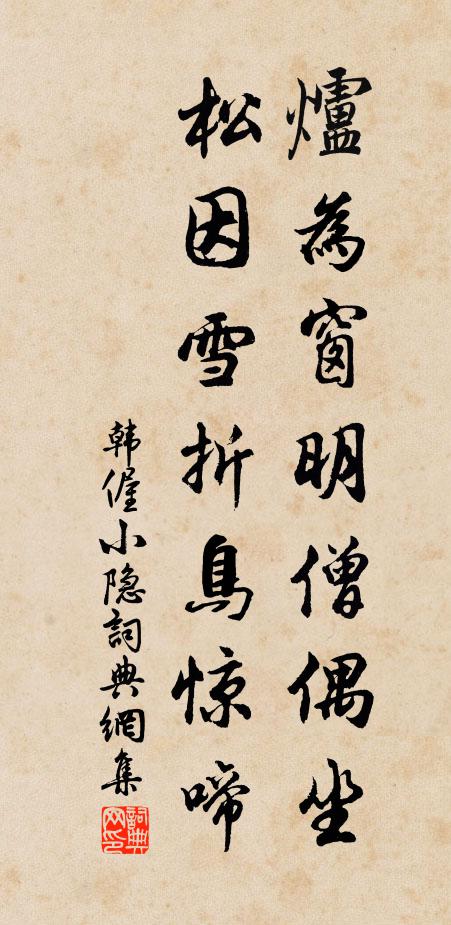 爐為窗明僧偶坐
松因雪折鳥惊啼
韩偓小隐詞典網集
詞典网印